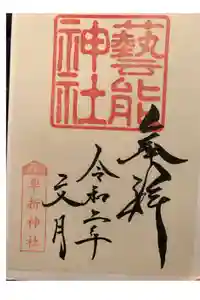 藝能神社
奉拝
令和二年
文月
車折神社